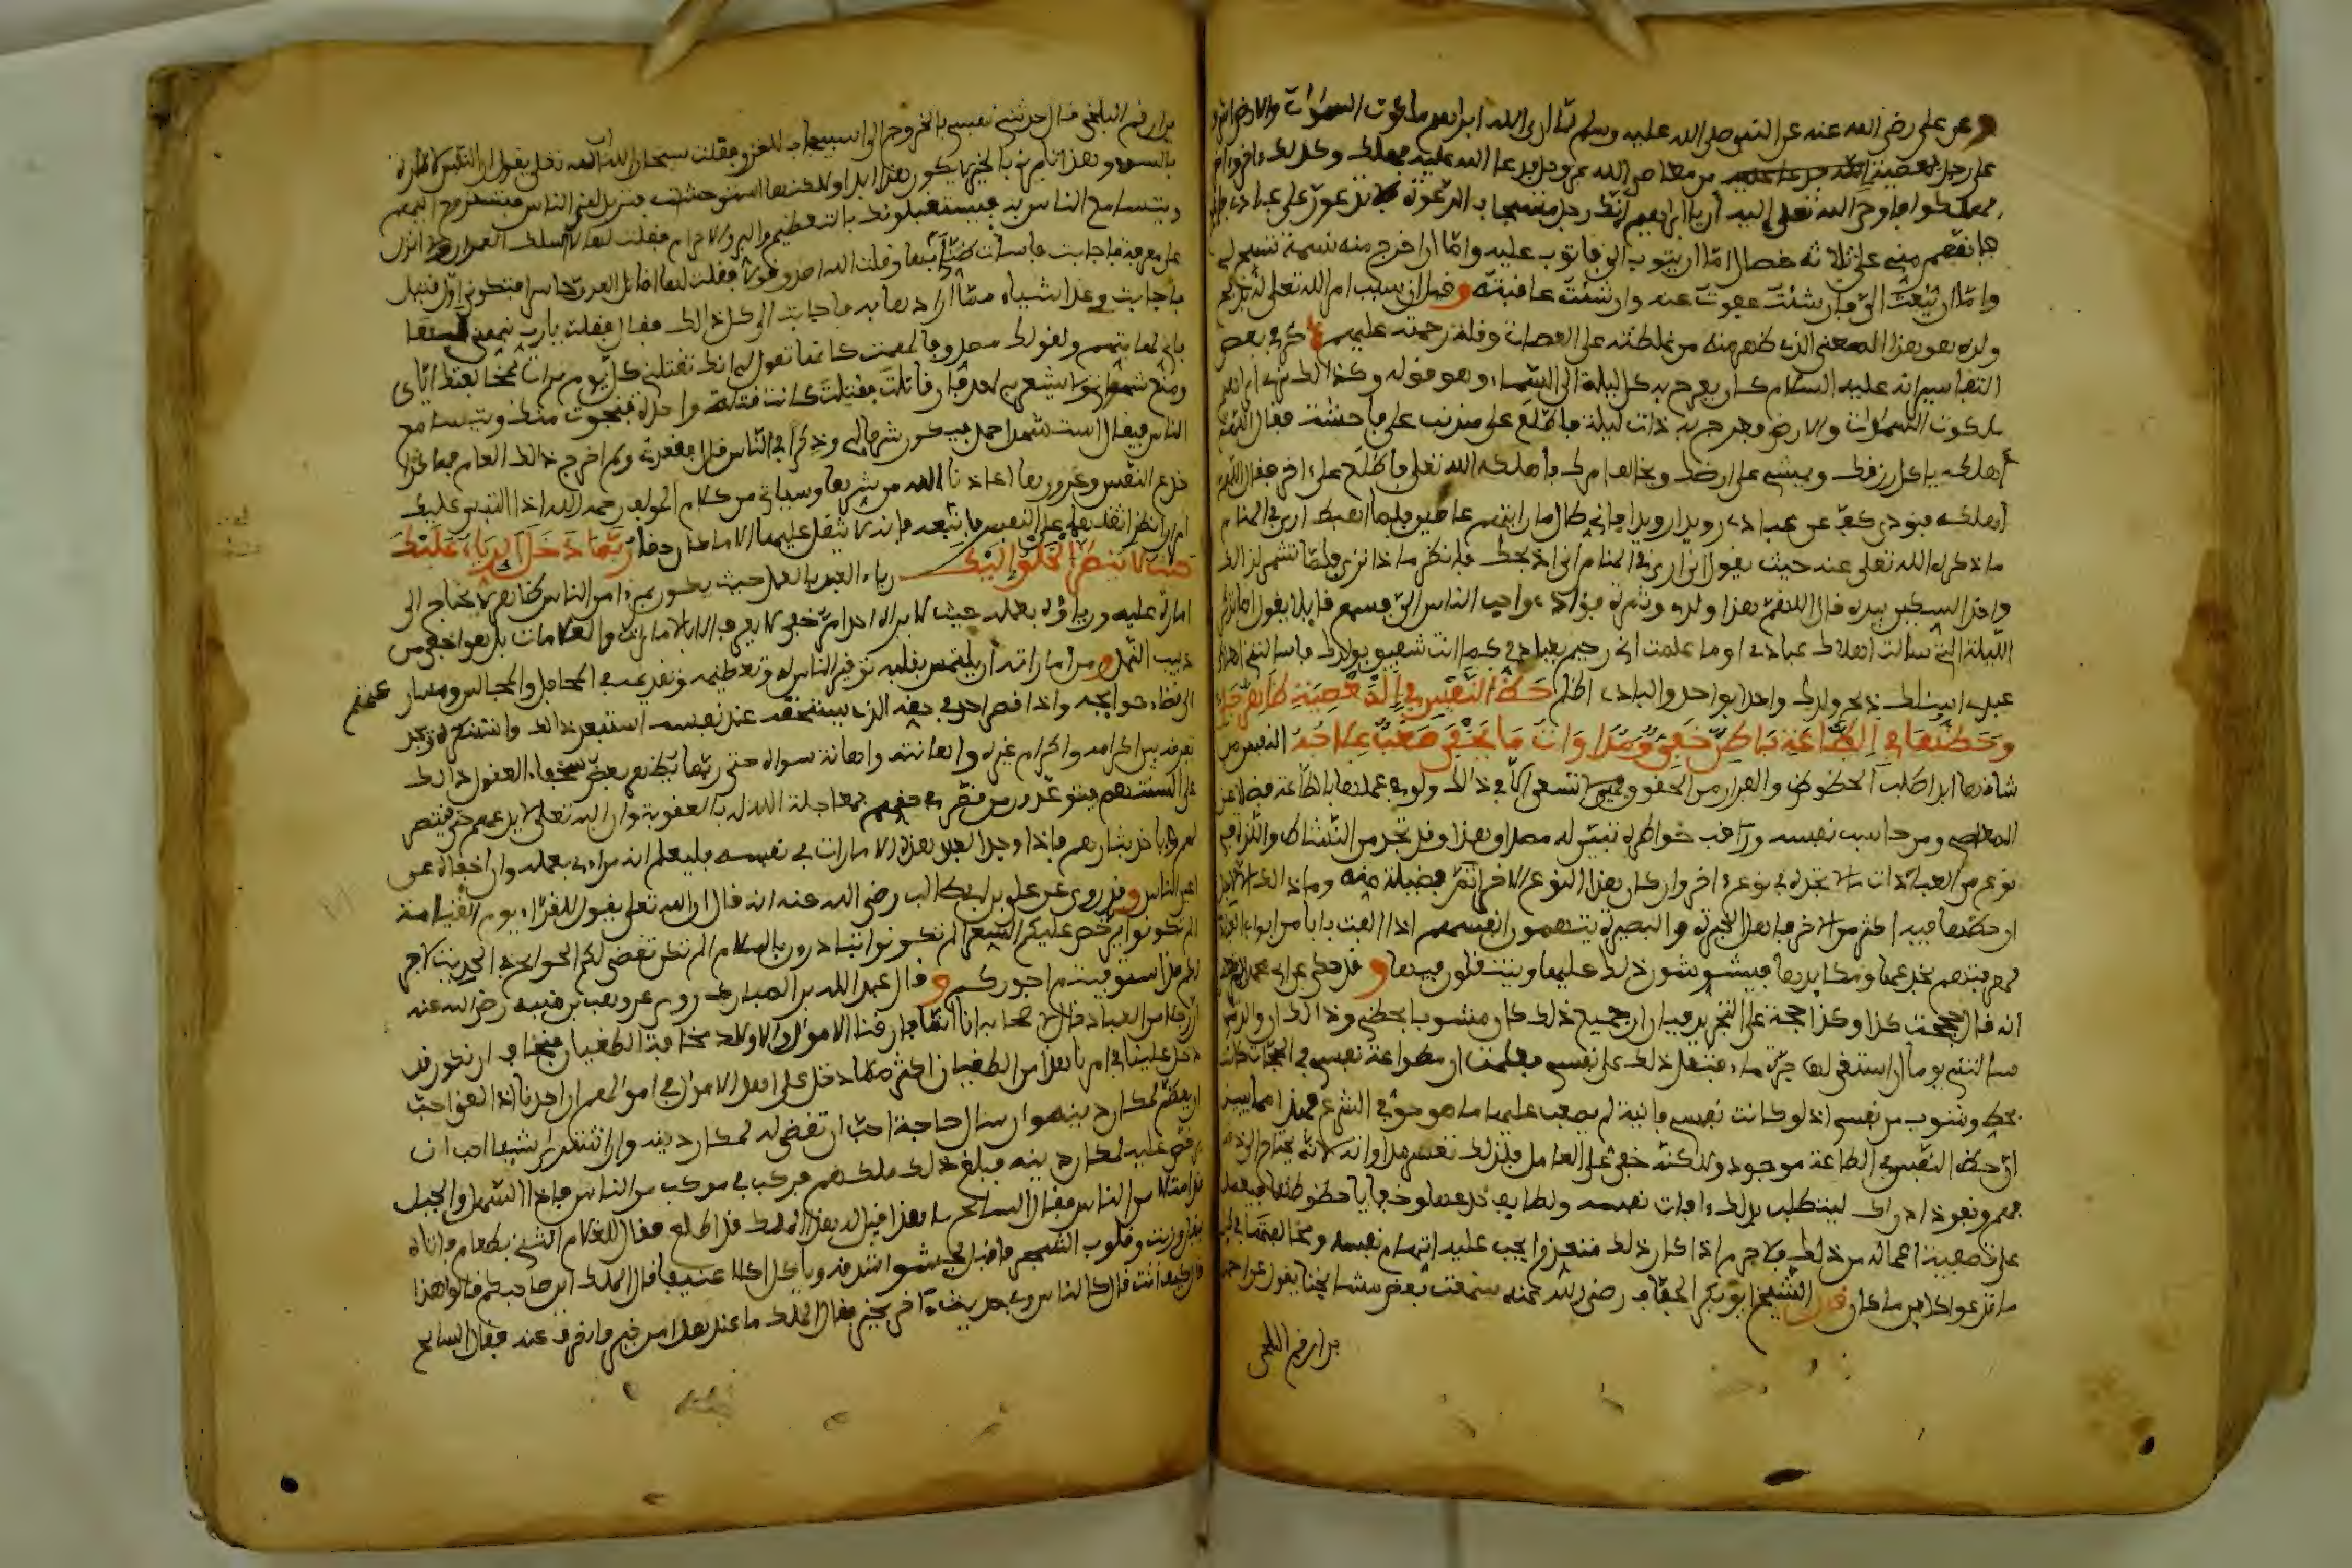 وعن علي رضي الله عنه عن النبي صلى الله عليه وسلم لما أرى الله إبراهيم ملكوت السموات والارض أشرف
على رجل بمعصية من معاصي الله عز وجل فدعا الله عليه فهلك وكذلك ءاخر وءاخر
فهلكوا فأوحى الله تعلى إليه أن يا ابراهيم إنك رجل مستجاب الدعوة فلا تدعون على عبادي
فإنهم مني على ثلاثة خصال إما أن يتوب إلي فأتوب عليه وإما أن أخرج منه نسمة تسبح لي
وإما أن يبعث إلي فإن شئت عفوت عنه وإن شئت عاقبته وقيل إن سبب امر الله تعلى له بذبح
ولده هو هذا المعنى الذي ظهر منه من غلظته على العصات وقلة رحمته عليهم ذكر في بعض
التفاسير انه عليه السلام كان يعرج به كل ليلة الى السماء وهو قوله وكذلك نري ابراهيم
ملكوت السموات والارض فعرج به ذات ليلة فاطلع على مذنب على فاحشة فقال اللهم
أهلكه ياكل رزقك ويمشي على ارضك ويخالف امرك فأهلكه الله تعلى فاطلع على ءاخر فقال اللهم
أهلكه فنودي كف عن عبادي رويدا رويدا فإني طال ما رأيتهم عاصين فلما اهبط أري في المنام
ما ذكره الله تعلى عنه حيث يقول إني أرى في المنام اني أذبحك فانظر ماذا ترى فلما تشمر لذلك
واخذ السكين بيده قال اللهم هذا ولدي وثمرة فؤادي وأحب الناس إلي فسمع قائلا يقول أما تذكر
الليلة التي سألت اهلاك عبادي أوما علمت اني رحيم بعبادي كما انت شفيق بولدك فإذا سألتني اهلاك
عبدي اسألك ذبح ولدك واحدا بواحد والبادي أظلم حظ النفس في المعصية ظاهر جلي
وحظها في الطاعة باطن خفي ومداوات ما يخفى صعب علاجه النفس من
شأنها ابدا طلب الحظوظ والفرار من الحقوق فهي لا تسعى إلا في ذلك ولو في عملها بالطاعة فضلا عن
المعاصي ومن حاسب نفسه وراقب خواطره تبين له مصداق هذا وقد تجد من النشاط واللذة في
نوع من العبادات ما لا تجده في نوع ءاخر وإن كان هذا النوع الآخر أتم فضيلة منه وما ذلك إلا لأجل
ان حظها فيه أكثر من الآخر فأهل الخبرة والبصيرة يتهمون أنفسهم إذا ألفت بابا من ابواب العبادة
لمعرفتهم بخدعها ومكايدها فيشوشون ذلك عليها وينتقلون منها وقد حكي عن ابي محمد المرتعش
أنه قال حججت كذا وكذا حجة على التجريد فبان لي أن جميع ذلك كان مشوبا بحظي وذلك أن والدتي
سألتني يوما أن استقي لها جرة ماء فثقل ذلك على نفسي فعلمت أن مطاوعة نفسي في الحجات كانت
بحظ وشوب من نفسي إذ لو كانت نفسي فانية لم يصعب عليها ما هو حق في الشرع فهذا مما يبين
أن حظ النفس في الطاعة موجود ولكنه خفي على العامل فلذلك تعسر مداواته لأنه يحتاج إلى دقة
فهم ونفوذ ادراك ليتطلب بذلك ءافات نفسه ولطايف خدعها وخفايا حظوظها فيعمل
على تصفية اعماله من ذلك فلا جرم اذا كان ذلك متعذرا يجب عليه اتهام نفسه ومخالفتها في كل
ما تدعو اليه كاينا ما كان قال الشيخ ابو بكر الخفاف رضي الله عنه سمعت بعض مشايخنا يقول عن احمد
بن ارقم البلخي
بن ارقم البلخي قال حدثتني نفسي بالخروج الى اسبيجاب للغزو فقلت سبحان الله إن الله تعلى يقول إن النفس لأمارة
بالسوء وهذه تامرني بالخير لا يكون هذا ابدا ولكنها استوحشت فتريد لقي الناس فتستروح اليهم
ويتسامح الناس به فيستقبلونك بالتعظيم والبر والاكرام فقلت لها لا أسلك العمران ولا أنزل
على معرفة فأجابت فأسأت ظني بها وقلت الله اصدق قولا فقلت لها اقاتل العدو حاسرا فتكوني أول قتيل
فأجابت وعد أشياء مما أرادها به فأجابت إلى كل ذلك فقال فقلت يا رب نبهني لها
فإني لها متهم ولقولك مصدق فألهمت كأنها تقول إنك تقتلني كل يوم مرات بمخالفتك إياي
ومنع شهواتي ولا يشعر بي احد فإن قاتلت فقتلت كانت قتلة واحدة فنجوت منك ويتسامح
الناس فيقال استشهد احمد فيكون شرفا لي وذكرا في الناس قال فقعدت ولم اخرج ذلك العام
خدع النفس وغرورها أعاذنا الله من شرها وسيأتي من كلام المولف رحمه الله إذا التبس عليك
امران انظر اثقلهما على النفس فاتبعه فإنه لا يثقل عليها الا ما كان حقا ربما دخل الرياء عليك
حيث لا ينظر الخلق إليك رياء العبد بالعمل حيث يكون بمرءا من الناس ظاهر لا يحتاج الى
امارة عليه ورياؤه بعمله حيث لا يراه احد امر خفي لا يعرفه الا بالأمارات والعلامات بل هو اخفى من
دبيب النمل ومن أماراته أن يلتمس بقلبه توقير الناس له وتعظيمه وتقديمه في المحافل والمجالس ومسارعتهم
الى قضاء حوايجه واذا قصر احد في حقه الذي يستحقه عند نفسه استبعد ذلك واستنكره ويجد
تفرقة بين اكرامه واكرام غيره وإهانته وإهانة سواه حتى ربما يظهر بعض سخفاء العقول ذلك
على السنتهم فيتوعدون من قصر في حقهم بمعاجلة الله له بالعقوبة وأن الله تعلى لا يدعهم حتى ينتصر
لهم ويأخذ بثارهم فإذا وجد العبد هذه الامارات في نفسه فليعلم انه مراء بعمله وإن اخفاه عن
اعين الناس وقد روي عن علي بن ابي طالب رضي الله عنه انه قال إن الله تعلى يقول للقراء يوم القيامة
ألم تكونوا يرخص عليكم السعر ألم تكونوا تبادرون بالسلام ألم تكن تقضى لكم الحوايج وفي الحديث لا أجر
لكم قد استوفيتم اجوركم وقال عبد الله بن المبارك روي عن وهب بن منبه رضي الله عنه
أن رجلا من العباد قال لأصحابه إنا إنما فارقنا الاموال والاولاد مخافة الطغيان فنخاف ان نكون قد
دخل علينا في امرنا هذا من الطغيان اكثر مما دخل على اهل الاموال في اموالهم إن احدنا إذا لقي احب
ان يعظم لمكان دينه وإن سأل حاجة احب ان تقضى له لمكان دينه وإن اشترى شيئا احب ان
يرخص عليه لمكان دينه فبلغ ذلك ملكهم فركب في موكب من الناس فإذا السهل والجبل
قد امتلأ من الناس فقال السايح ما هذا فقيل له هذا الملك قد اظلك فقال للغلام ايتني بطعام فأتاه
ببقل وزيت وقلوب الشجر فأقبل يحشو شدقه ويأكل اكلا عنيفا فقال الملك اين صاحبكم قالوا هذا
قال كيف انت قال كالناس وفي حديث ءاخر بخير فقال الملك ما عند هذا من خير فانصرف عنه فقال السايح